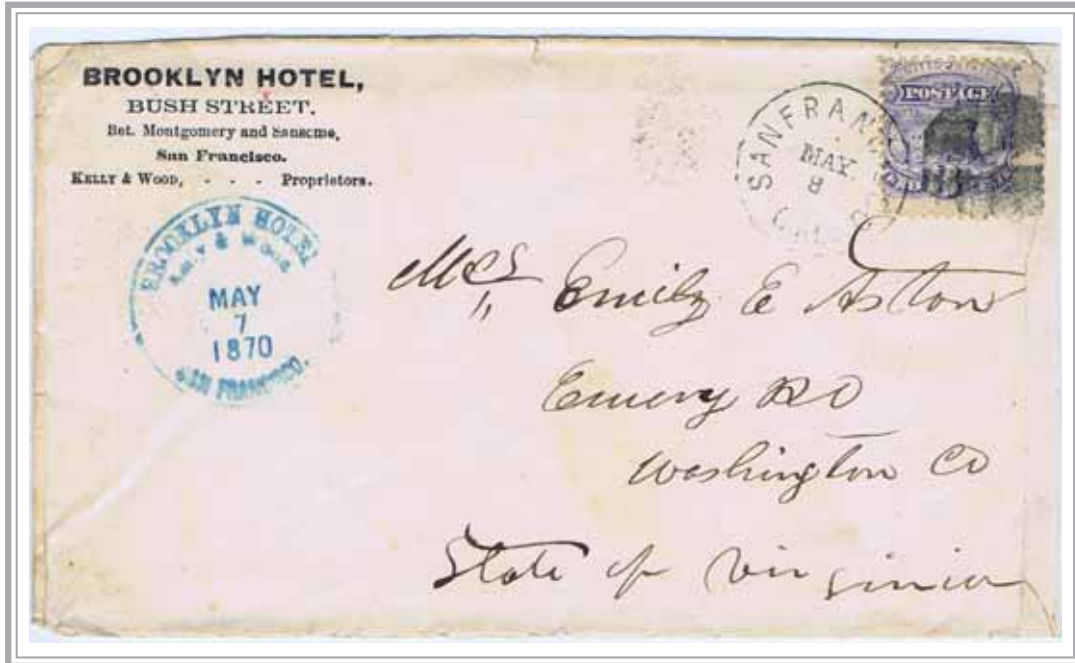 BROOKLYN HOTEL,
BUSH STREET.
Bet. Montgomery and Sansome,
San Francisco.
KELLY & WOOD, - - - Proprietors.
BROOKLYN HOTEL
KELLY & WOOD
MAY
7
1870
SAN FRANCISCO.
SAN FRAN
MAY
8
CAL
POSTAGE
Mrs Emily E Aston
Emery PO
Washington Co
State of Virginia